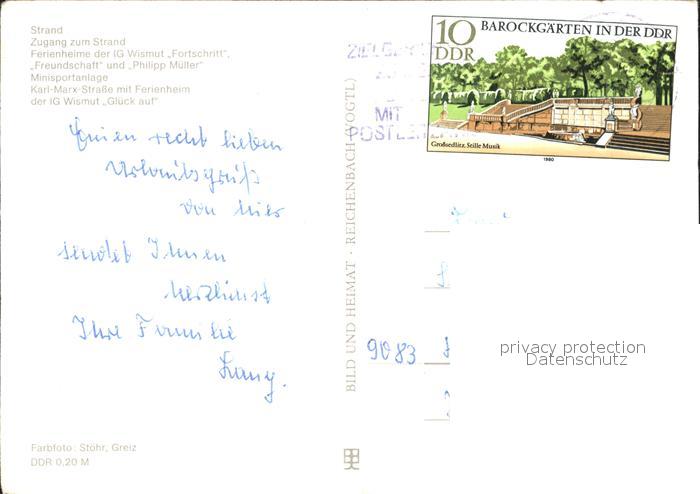 Strand
Zugang zum Strand
Ferienheime der IG Wismut „Fortschritt",
„Freundschaft" und „Philipp Müller"
Minisportanlage
Karl-Marx-Straße mit Ferienheim
der IG Wismut „Glück auf"
Einen recht lieben
Urlaubsgruß
von hier
sendet Ihnen
herzlichst
Ihre Familie
Lang.
Farbfoto: Stöhr, Greiz
DDR 0,20 M
BILD UND HEIMAT · REICHENBACH (VOGTL)
MIT
10
DDR
BAROCKGÄRTEN IN DER DDR
Großsedlitz, Stille Musik
1980
9083
privacy protection
Datenschutz